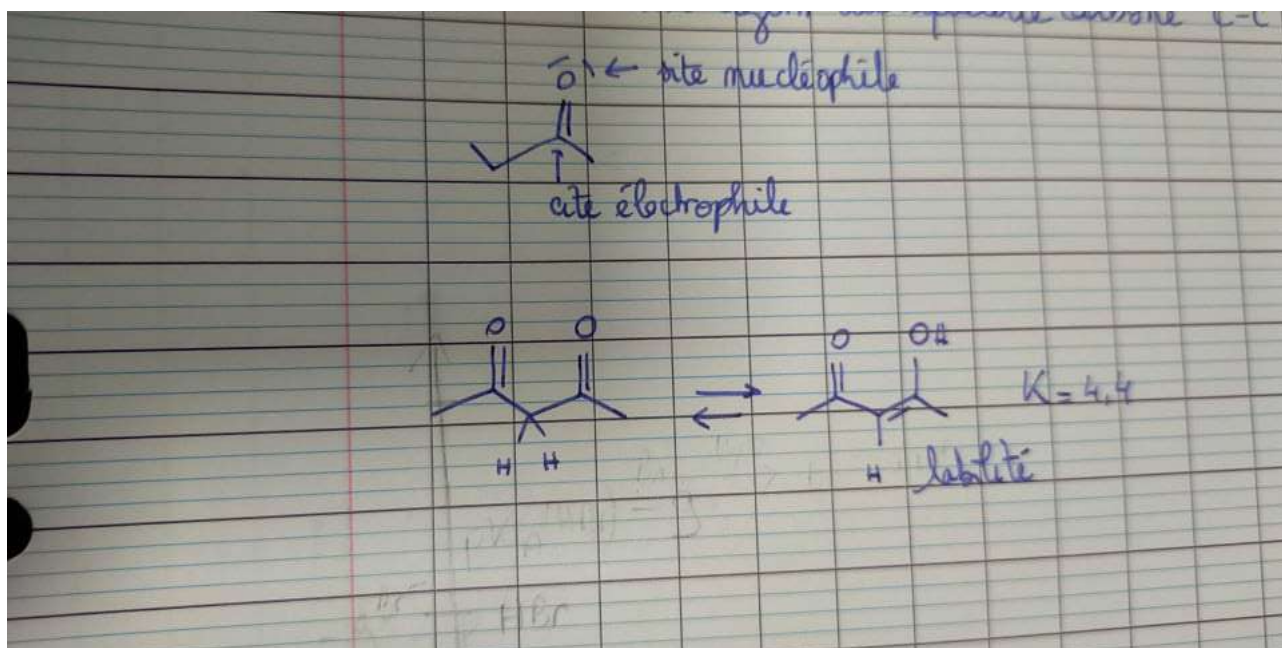 C-C
O ← site nucléophile
cite électrophile
O O ⇌ O OH K = 4,4
H H H labilité
HBr